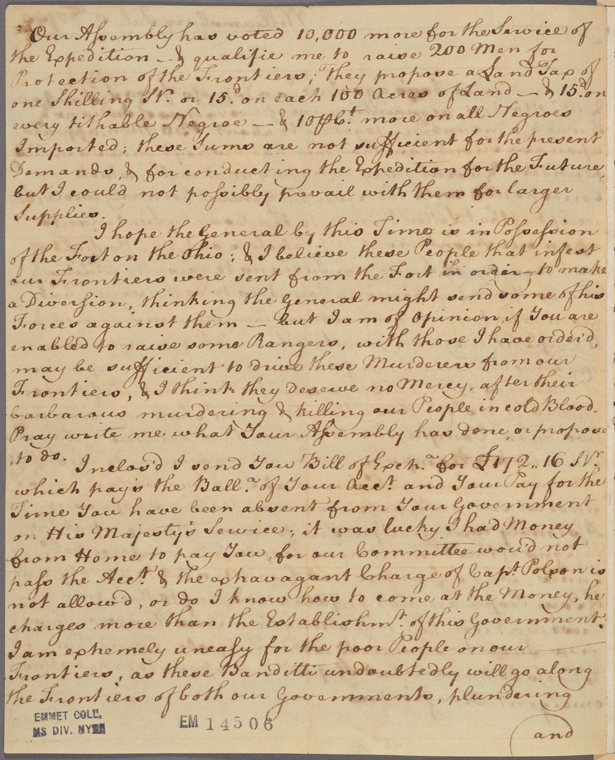 Our Assembly has voted 10,000 more for the Service of
the Expedition — & qualifie me to raise 200 Men for
Protection of the Frontiers; They propose a Land Tax of
one Shilling St. or 15.d on each 100 Acres of Land — & 15.d on
every tithable Negroe — & 10 more on all Negroes
Imported; these Sums are not sufficient for the present
Demands, & for conducting the Expedition for the Future,
but I could not possibly prevail with them for larger
Supplies.
I hope the General by this Time is in Possession
of the Fort on the Ohio; & I believe these People that infest
our Frontiers were sent from the Fort in order to make
a Diversion, thinking the General might send some of his
Forces against them — but I am of Opinion, if You are
enabled to raise some Rangers, with those I have order'd,
may be sufficient to drive these Murderers from our
Frontiers, & I think they deserve no Mercy, after their
barbarous murdering & killing our People in cold Blood.
Pray write me what Your Assembly has done, or propose
to do.
Inclos'd I send You Bill of Exch.a for £172..16 St.
which pay's the Ball.a of Your Acct. and Your Pay for the
Time You have been absent from Your Government
on His Majesty's Service; it was lucky I had Money
from Home to pay You, for our Committee wou'd not
pass the Acct. & the extravagant Charge of Capt. Polson is
not allow'd, or do I know how to come at the Money, he
charges more than the Establishmt. of this Government.
I am extremely uneasy for the poor People on our
Frontiers, as these Banditti undoubtedly will go along
the Frontiers of both our Governments, plundering
and
EMMET COLL.
MS DIV. NYPL
EM 14506